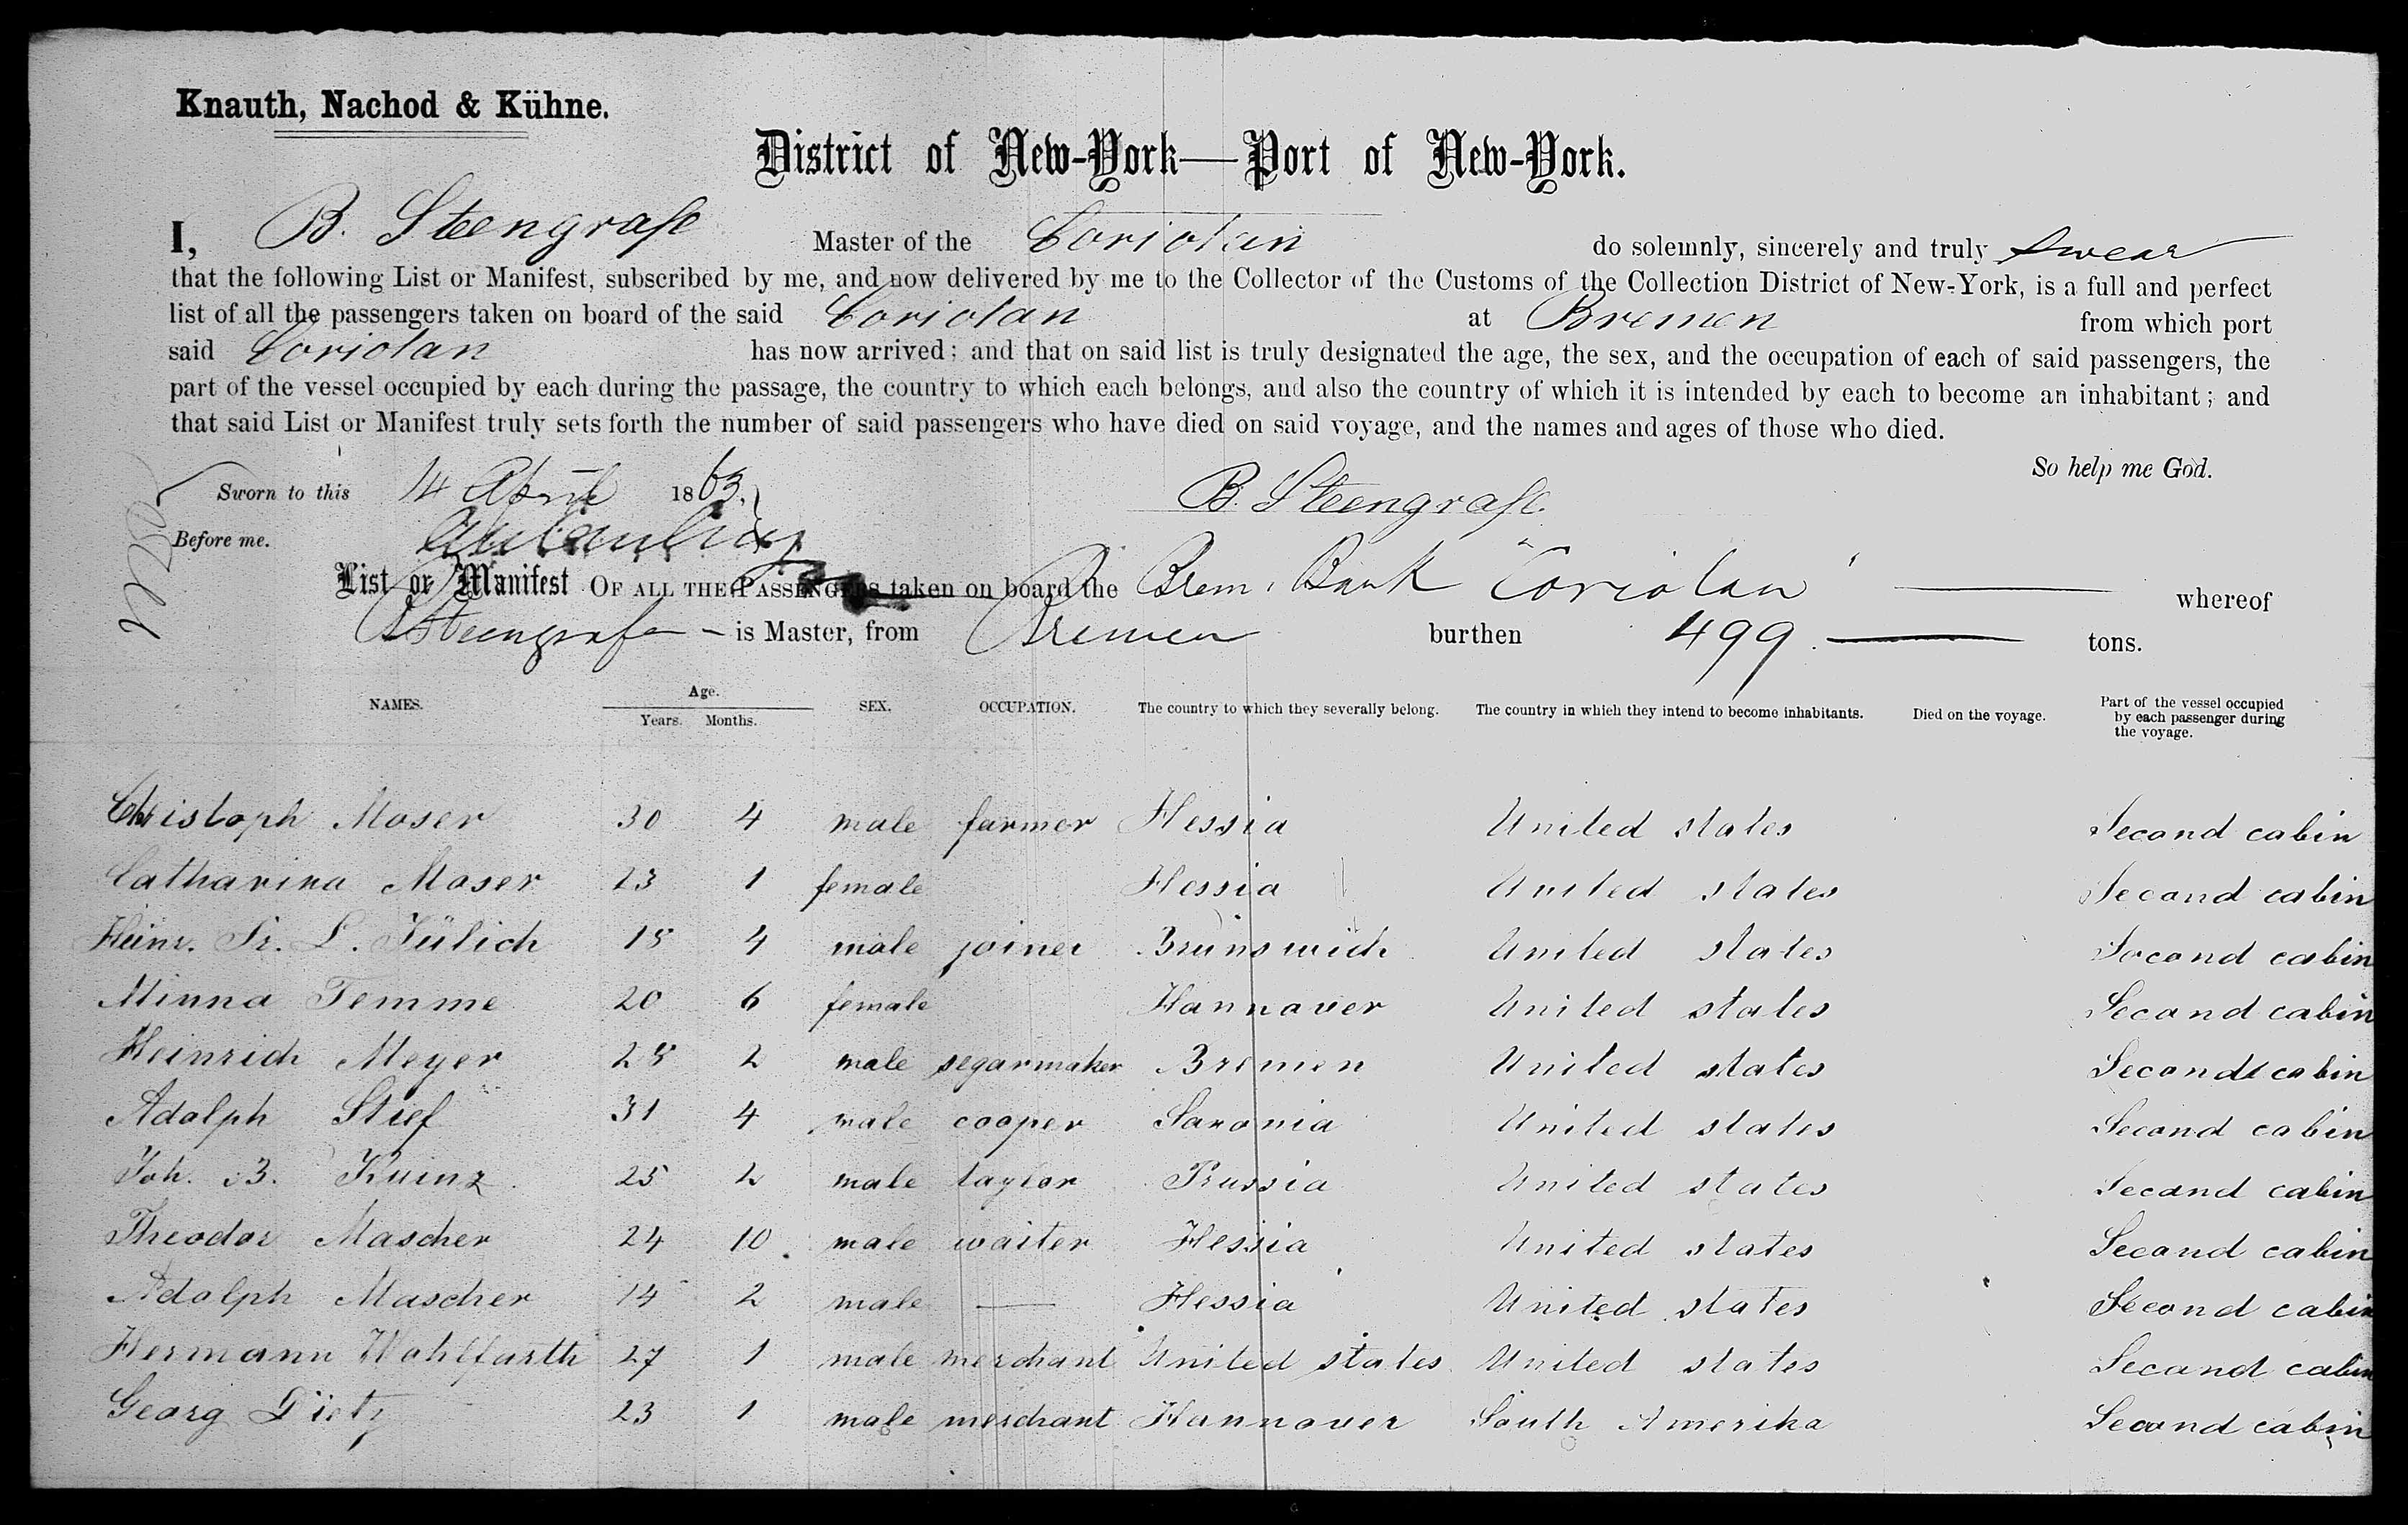 Knauth, Nachod & Kühne.
District of New-York—Port of New-York.
I, B. Steengrafe Master of the Coriolan do solemnly, sincerely and truly swear
that the following List or Manifest, subscribed by me, and now delivered by me to the Collector of the Customs of the Collection District of New-York, is a full and perfect
list of all the passengers taken on board of the said Coriolan at Bremen from which port
said Coriolan has now arrived; and that on said list is truly designated the age, the sex, and the occupation of each of said passengers, the
part of the vessel occupied by each during the passage, the country to which each belongs, and also the country of which it is intended by each to become an inhabitant; and
that said List or Manifest truly sets forth the number of said passengers who have died on said voyage, and the names and ages of those who died.
So help me God.
Sworn to this 14 April 1863. B. Steengrafe.
Before me.
List or Manifest OF ALL THE PASSENGERS taken on board the Brem. Bark "Coriolan" whereof
B Steengrafe is Master, from Bremen burthen 499. tons.
NAMES. Age. Years. Months. SEX. OCCUPATION. The country to which they severally belong. The country in which they intend to become inhabitants. Died on the voyage. Part of the vessel occupied by each passenger during the voyage.
Christoph Moser 30 4 male farmer Hessia United states Second cabin
Catharina Moser 23 1 female Hessia United states Second cabin
Heinr. Fr. L. Jülich 18 4 male joiner Brunswich United states Second cabin
Minna Temme 20 6 female Hannover United states Second cabin
Heinrich Meyer 28 2 male segarmaker Bremen United states Second cabin
Adolph Stief 31 4 male cooper Saxonia United states Second cabin
Joh. B. Kuinz 25 2 male taylor Prussia United states Second cabin
Theodor Mascher 24 10 male waiter Hessia United states Second cabin
Adolph Mascher 14 2 male — Hessia United states Second cabin
Hermann Wohlfarth 27 1 male merchant United states United states Second cabin
Georg Dietz 23 1 male merchant Hannover South Amerika Second cabin